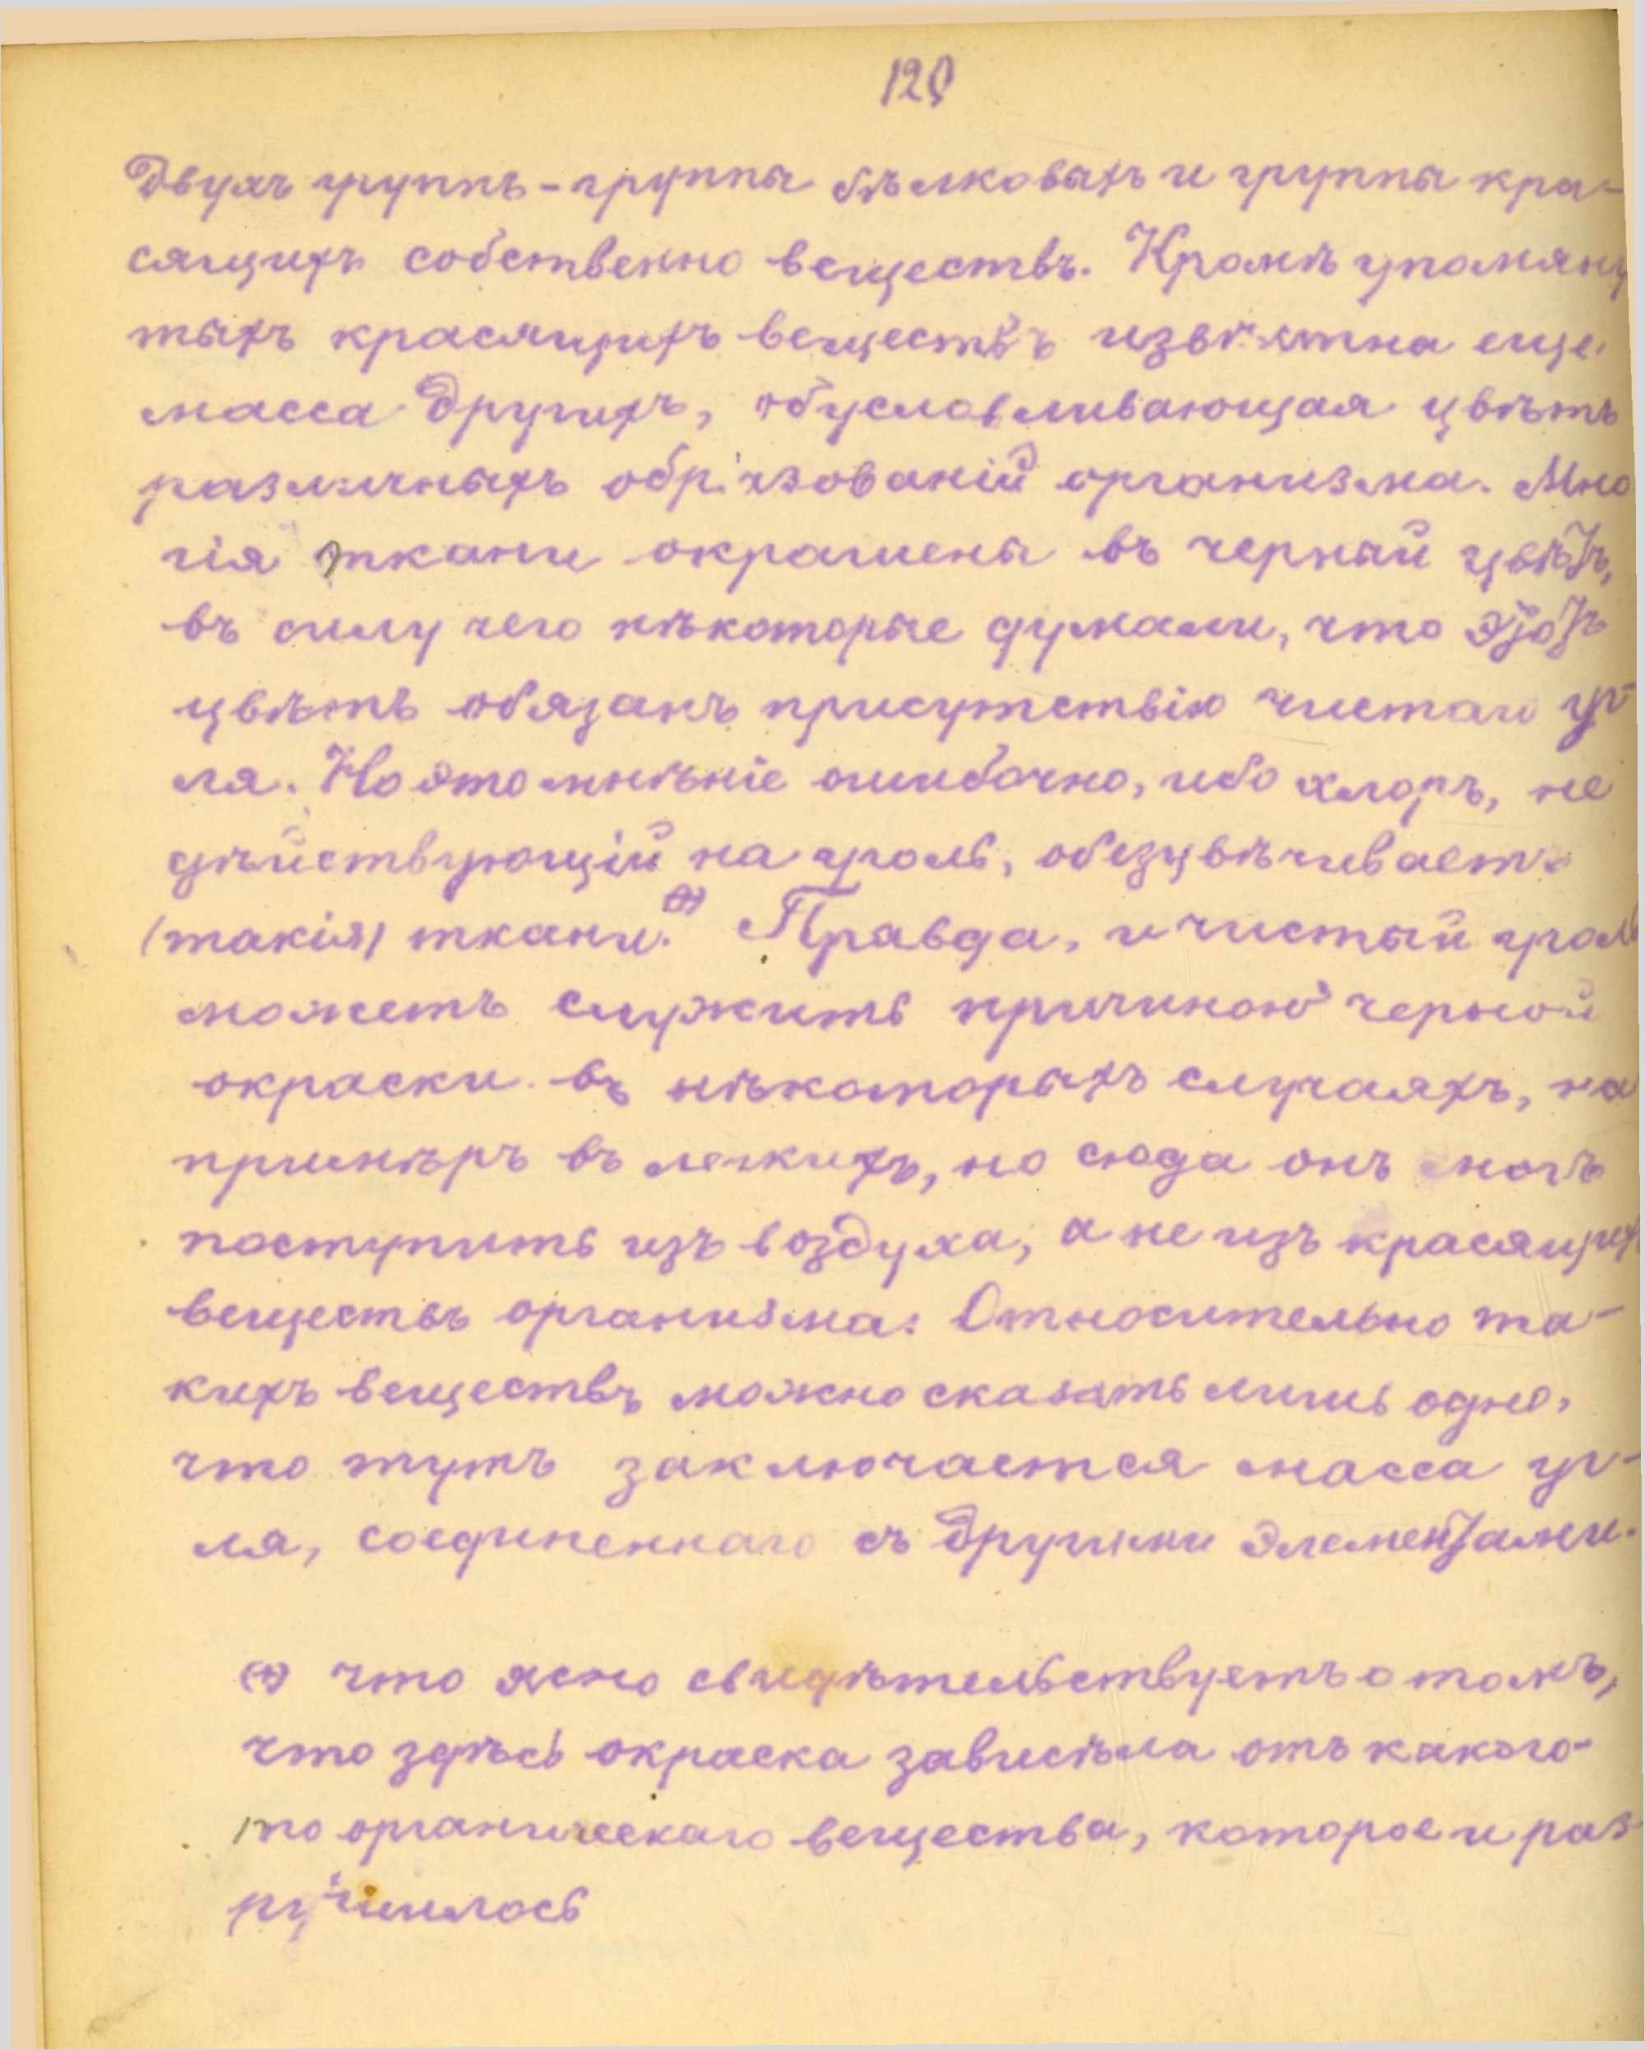 129
двухъ группъ - группы бѣлковыхъ и группы кра-
сящихъ собственно веществъ. Кромѣ упомяну
тыхъ красящихъ веществъ извѣстна еще
масса другихъ, обусловливающая цвѣтъ
различныхъ образованій организма. Мно
гія ткани окрашены въ черный цвѣтъ,
въ силу чего нѣкоторые думали, что этотъ
цвѣтъ обязанъ присутствію чистаго уг-
ля. Но это мнѣніе ошибочно, ибо хлоръ, не
дѣйствующій на уголь, обезцвѣчиваетъ
(такія) ткани.(+) Правда, и чистый уголь
можетъ служить причиною черной
окраски въ нѣкоторыхъ случаяхъ, на
примѣръ въ легкихъ, но сюда онъ могъ
поступить изъ воздуха, а не изъ красящихъ
веществъ организма: Относительно та-
кихъ веществъ можно сказать лишь одно,
что тутъ заключается масса уг-
ля, соединеннаго съ другими элементами.
(+) что ясно свидѣтельствуетъ о томъ,
что здѣсь окраска зависѣла отъ какого-
то органическаго вещества, которое и раз-
рушилось